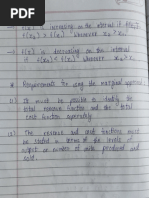 → f(x) is increasing on the interval if f(x₂) > f(x₁) whenever x₂ > x₁
→ f(x) is decreasing on the interval if f(x₂) < f(x₁) whenever x₂ > x₁
* Requirements for using the marginal approach:
(1) It must be possible to identify the total revenue function and the total cost function separately.
(2) The revenue and cost functions must be stated in terms of the levels of output or number of units produced and sold.